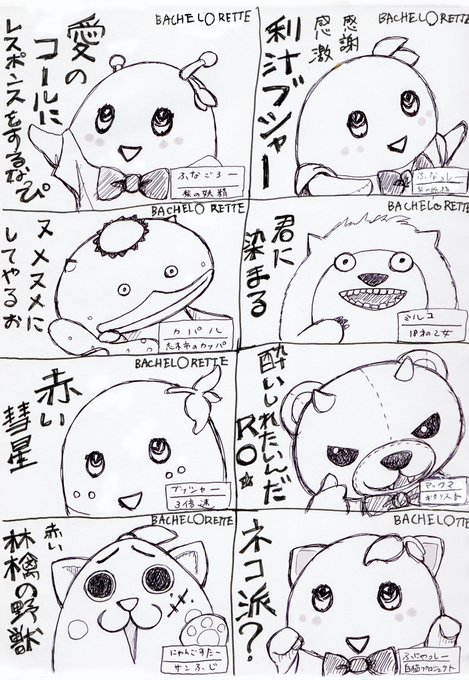 BACHELORETTE
感謝
感激
利汁ブシャー
ふなっしー
梨の妖精
BACHELORETTE
愛の
コールに
レスポンスをするなぴ
ふなごろー
梨の妖精
BACHELORETTE
君に
染まる
ミルコ
18才の乙女
BACHELORETTE
ヌメヌメに
してやるお
カパル
志木市のカッパ
BACHELORETTE
酔いしれたいんだ
ギタリスト
BACHELORETTE
赤い
彗星
ブッシャー
3倍速
BACHELOTTE
ネコ派?
ふにゃっしー
白猫プロジェクト
BACHELORETTE
赤い
林檎の野獣
にゃんごすたー
サンふじ